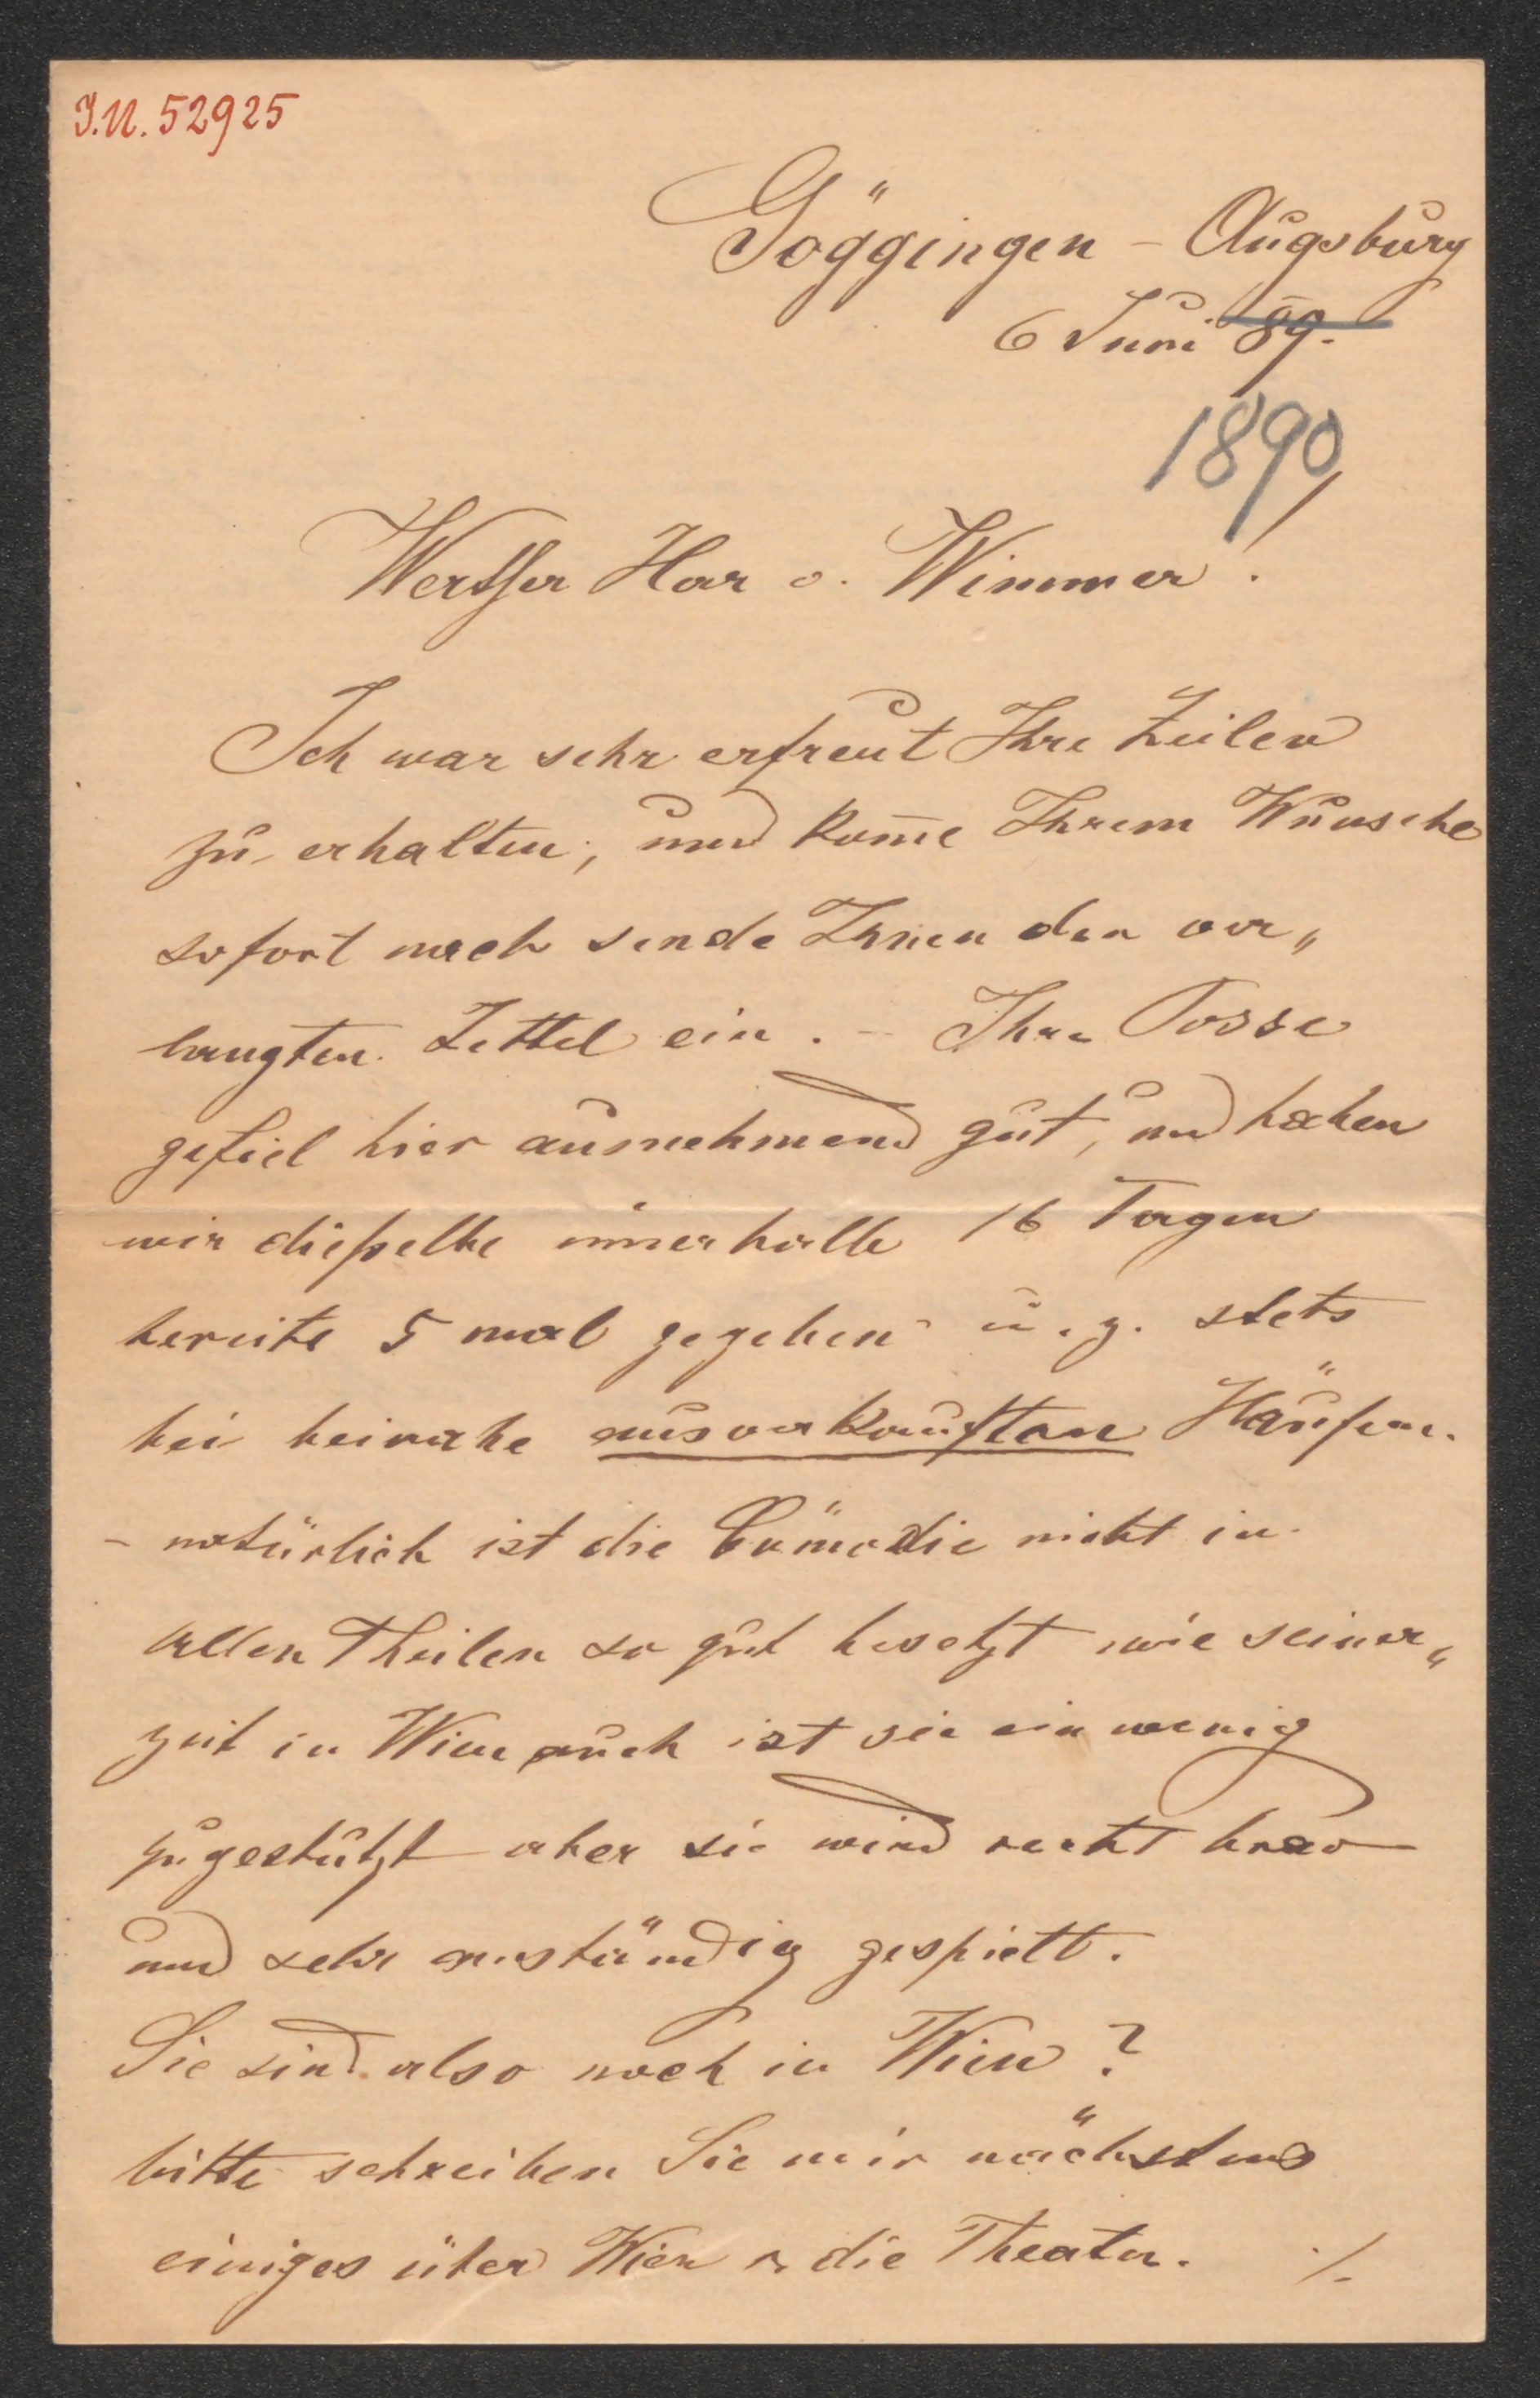 I.N. 52925
Göggingen – Augsburg
6 Juni 89.
1890
Werther Herr v. Wimmer!
Ich war sehr erfreut Ihre Zeilen
zu erhalten, und kom̅e Ihrem Wunsche
sofort nach sende Ihnen den ver„
langten Zettel ein. – Ihre Posse
gefiel hier ausnehmend gut, und haben
wir dießelbe innerhalb 16 Tagen
bereits 5 mal gegeben u. z. stets
bei beinahe ausverkauften Häusern.
– natürlich ist die Comödie nicht in
allen Theilen so gut besetzt wie seiner„
zeit in Wien auch ist sie ein wenig
zugestutzt aber sie wird recht brav
und sehr anständig gespielt.
Sie sind also noch in Wien?
bitte schreiben Sie mir nächstens
einiges über Wien u. die Theater. ./.